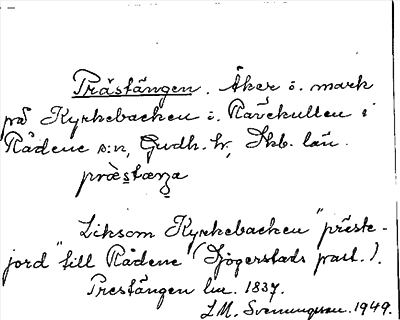 Prästängen. Åker o. mark
på Kyrkebacken i. Rävekullen i
Rådene s:n, Gudh. hr, Skb. län.
præstæŋa
Liksom Kyrkebacken "präste-
jord" till Rådene (Sjögerstads past.).
Prestängen lm. 1837.
L.M. Svenungsson. 1949.